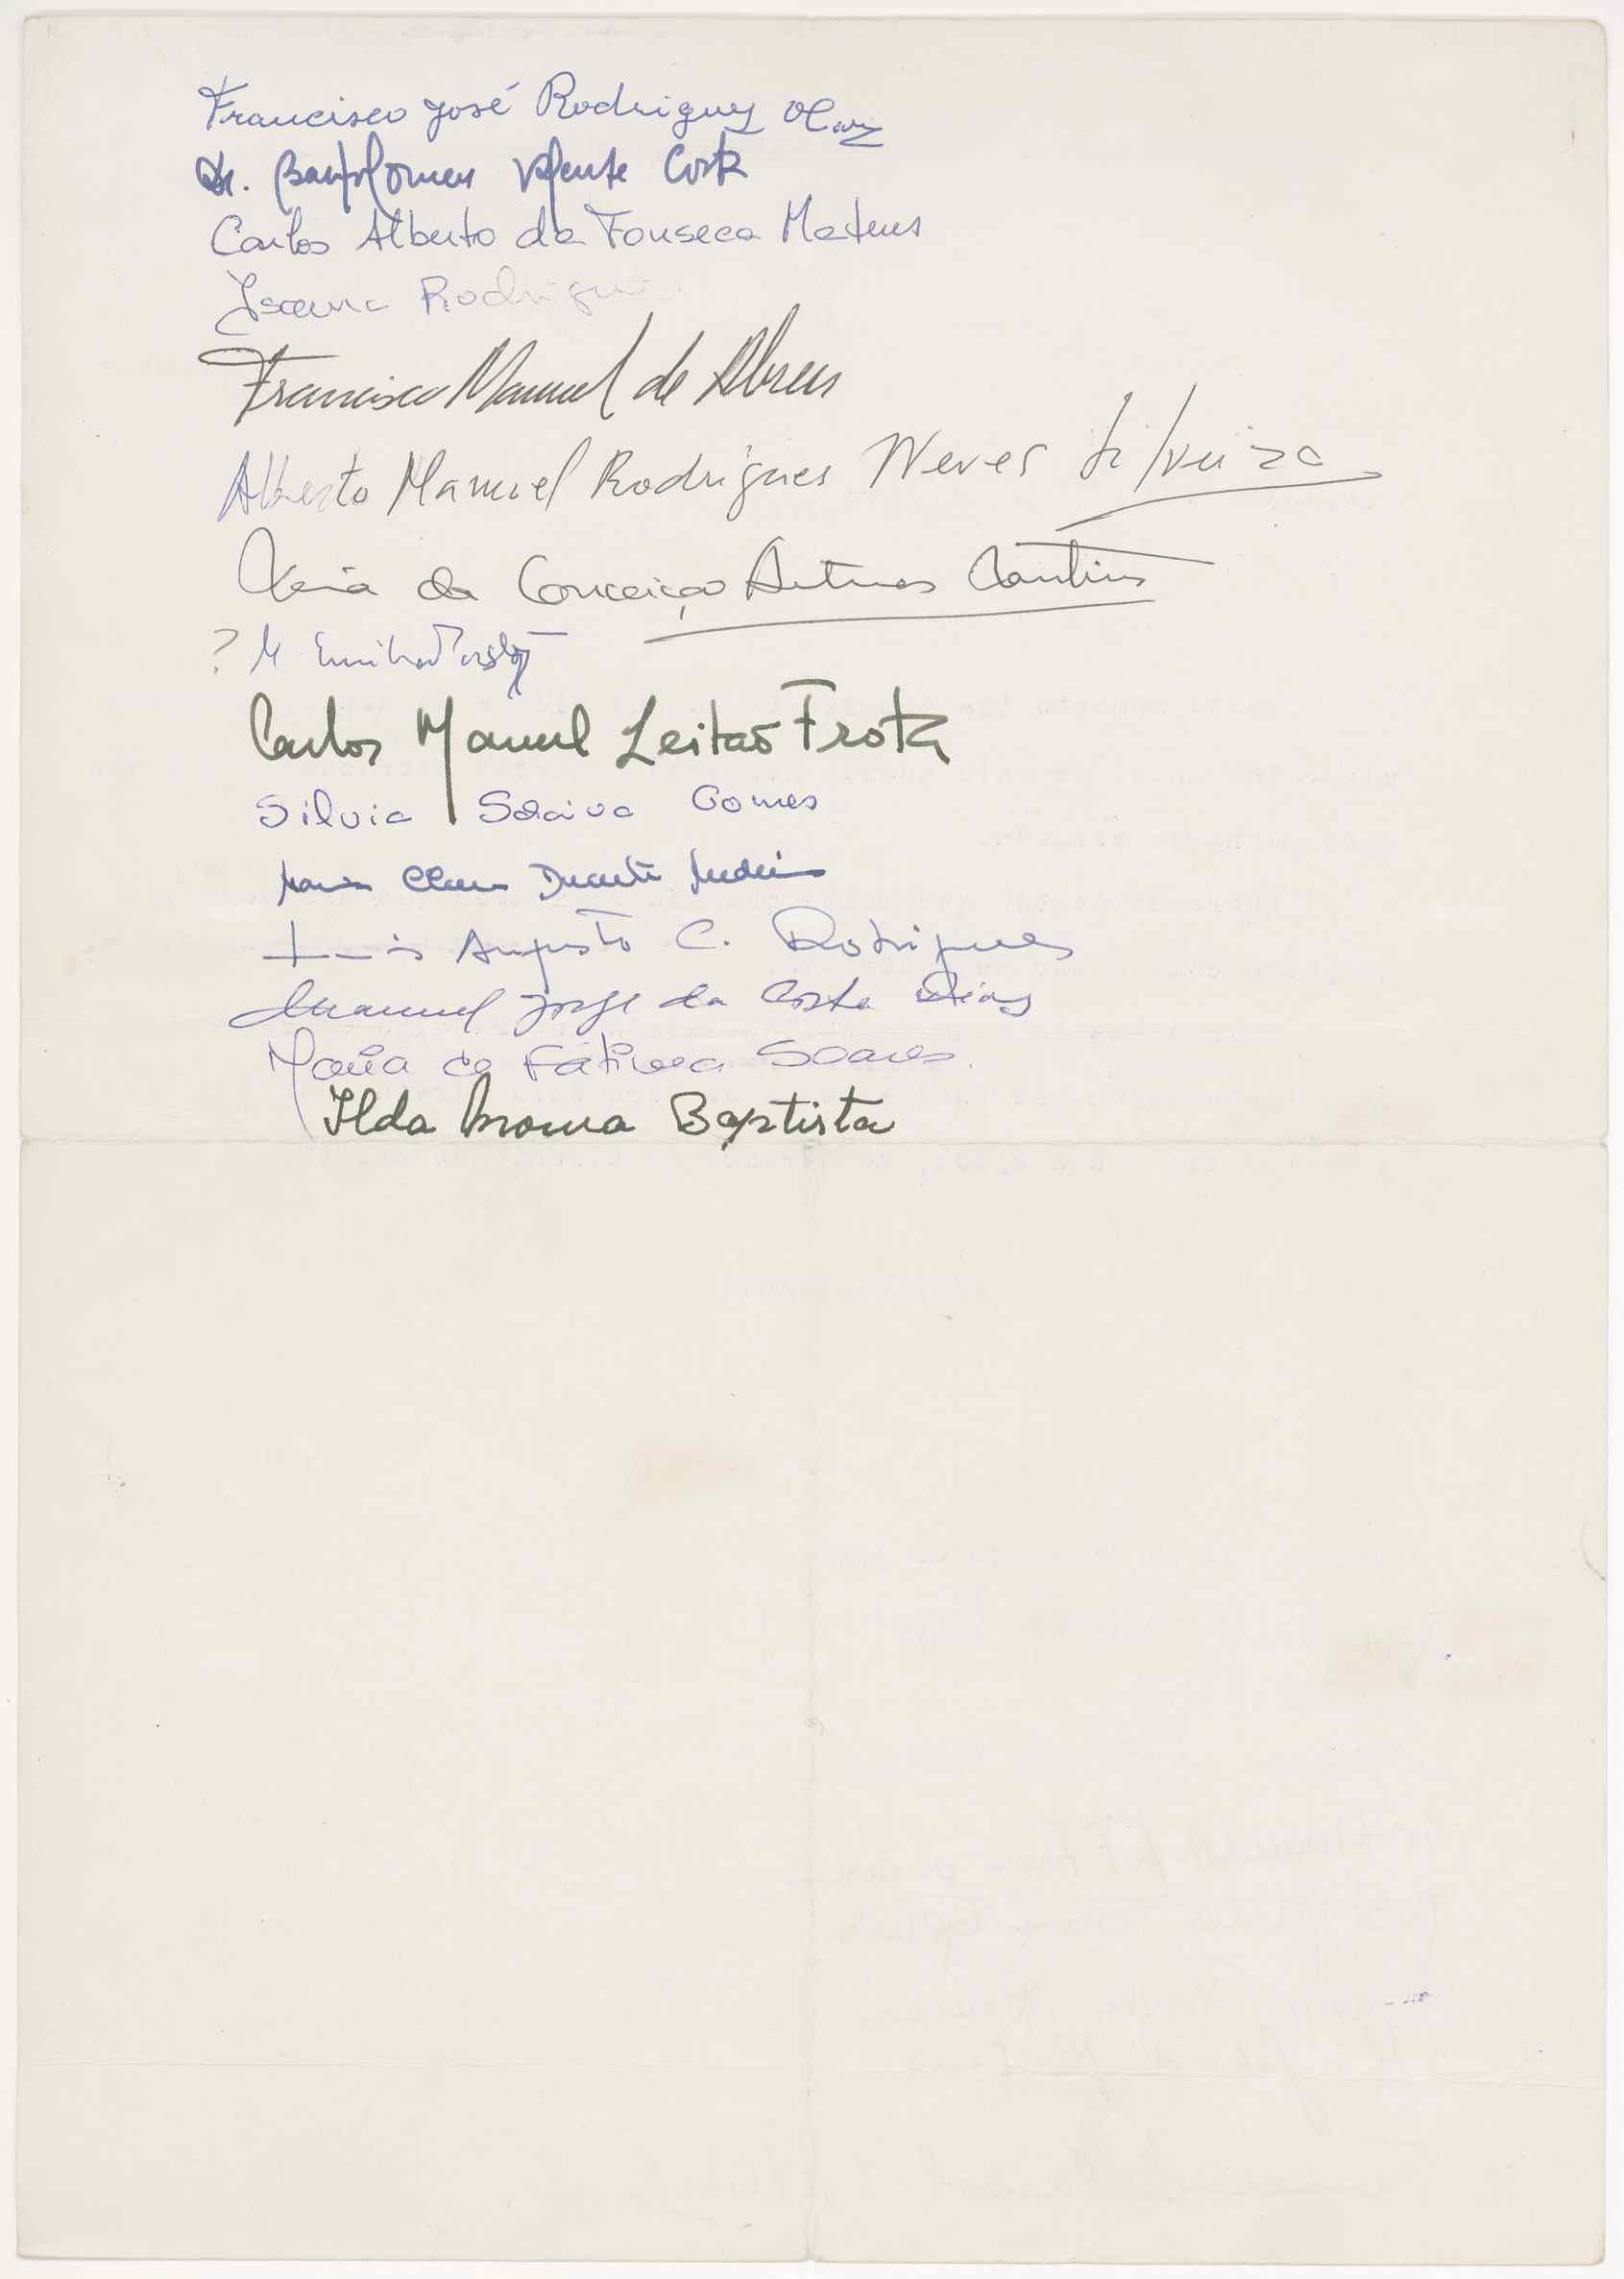 Francisco José Rodrigues
Dr. Bartolomeu Valente Costa
Carlos Alberto da Fonseca Mateus
Rodrigues
Francisco Manuel de Abreu
Alberto Manuel Rodrigues Neves Silveira
da Conceição Antunes
? M
Carlos Manuel Leitão Frota
Silvia Saraiva Gomes
Maria Clara Duarte
Luis Augusto C. Rodrigues
Manuel Jorge da Costa Dias
Maria de Fátima Soares.
Ilda Baptista